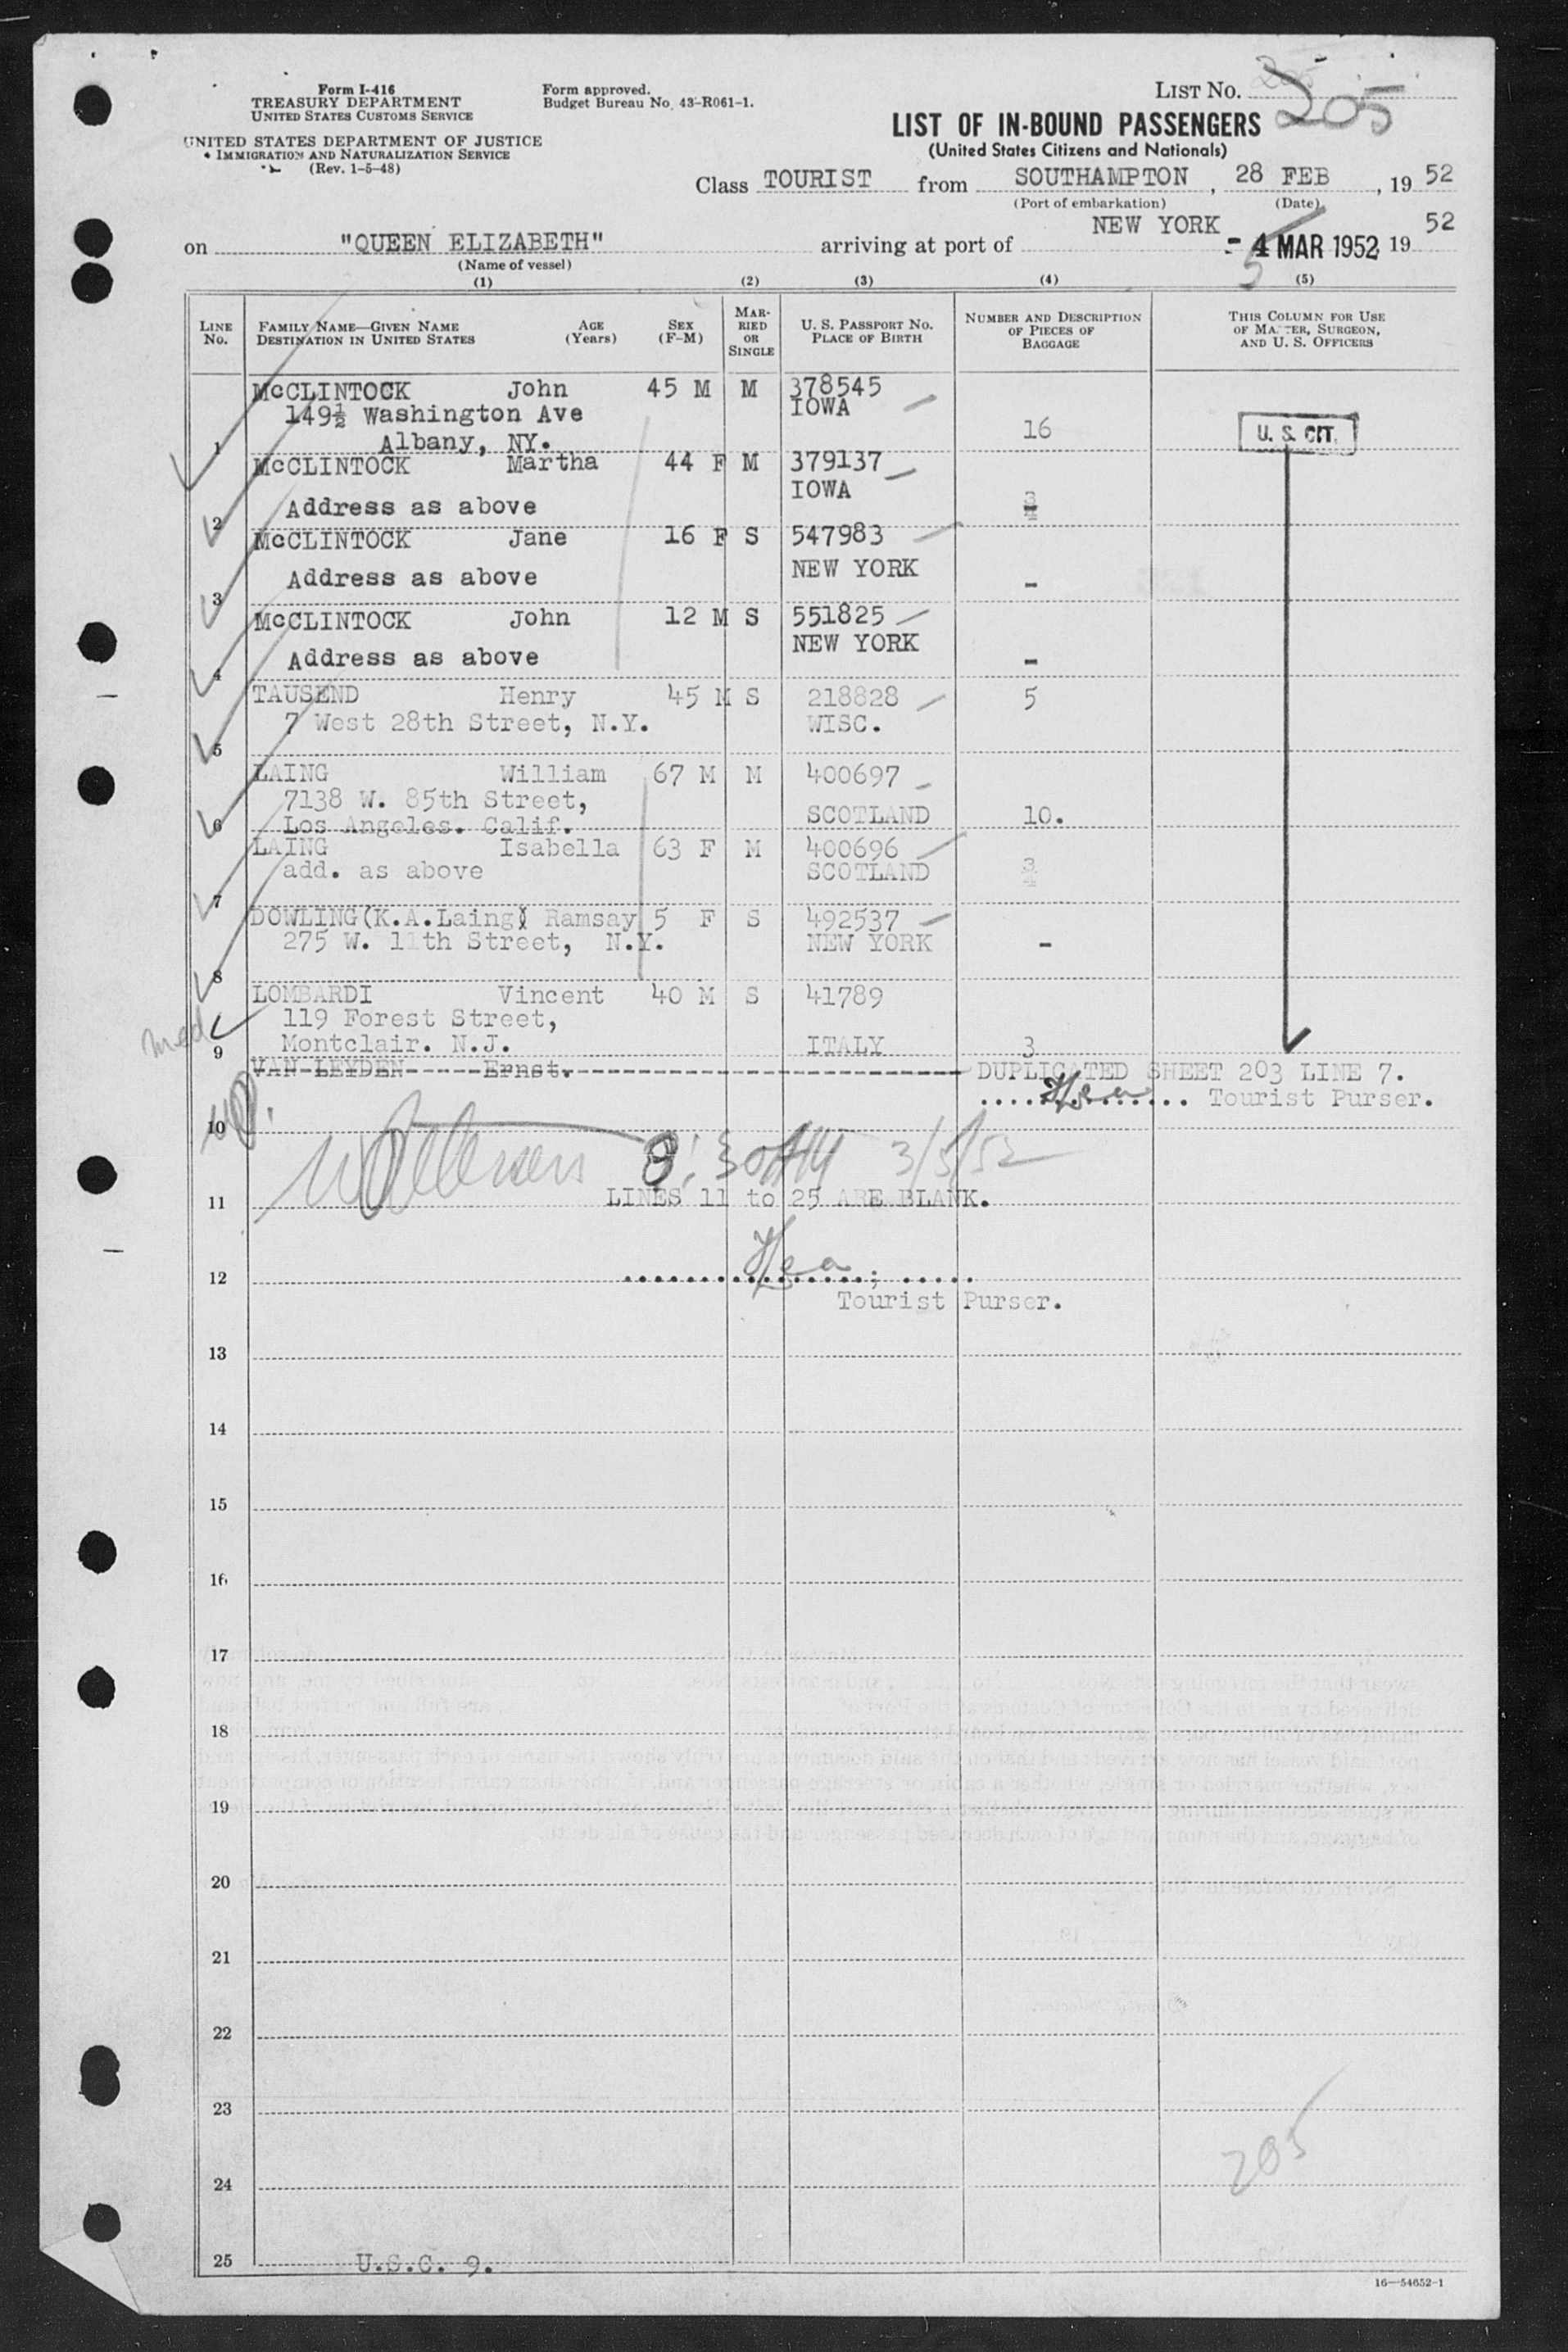 Form I-416
TREASURY DEPARTMENT
UNITED STATES CUSTOMS SERVICE
UNITED STATES DEPARTMENT OF JUSTICE
IMMIGRATION AND NATURALIZATION SERVICE
(Rev. 1-5-48)
Form approved.
Budget Bureau No. 43-R061-1.
LIST NO. 205
LIST OF IN-BOUND PASSENGERS
(United States Citizens and Nationals)
Class TOURIST from SOUTHAMPTON, 28 FEB, 19 52
(Port of embarkation) (Date)
on "QUEEN ELIZABETH" arriving at port of NEW YORK - 4 MAR 1952, 19 52
5
(Name of vessel)
(1) (2) (3) (4) (5)
LINE No. FAMILY NAME—GIVEN NAME DESTINATION IN UNITED STATES AGE (Years) SEX (F-M) MARRIED OR SINGLE U. S. PASSPORT NO. PLACE OF BIRTH NUMBER AND DESCRIPTION OF PIECES OF BAGGAGE THIS COLUMN FOR USE OF MASTER, SURGEON, AND U. S. OFFICERS
McCLINTOCK John 45 M M 378545
149½ Washington Ave IOWA
1 Albany, NY. 16 U. S. CIT.
McCLINTOCK Martha 44 F M 379137
IOWA
2 Address as above 3/4
McCLINTOCK Jane 16 F S 547983
NEW YORK
3 Address as above -
McCLINTOCK John 12 M S 551825
NEW YORK
4 Address as above -
TAUSEND Henry 45 M S 218828 5
5 7 West 28th Street, N.Y. WISC.
LAING William 67 M M 400697
7138 W. 85th Street,
6 Los Angeles. Calif. SCOTLAND 10.
LAING Isabella 63 F M 400696
7 add. as above SCOTLAND 3/4
DOWLING (K.A.Laing) Ramsay 5 F S 492537
8 275 W. 11th Street, N.Y. NEW YORK -
LOMBARDI Vincent 40 M S 41789
119 Forest Street,
med 9 Montclair. N.J. ITALY 3
VAN LEYDEN-----Ernst.----- DUPLICATED SHEET 203 LINE 7.
10 Tourist Purser.
8:30AM 3/5/52
11 LINES 11 to 25 ARE BLANK.
12
Tourist Purser.
13
14
15
16
17
18
19
20
21
22
23
24
205
25 U.S.C. 9.
16—54652-1